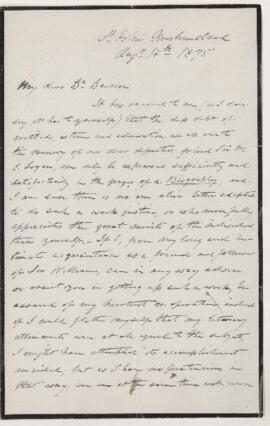 St. John's Newfoundland
Augt. 18th 1875
My dear Dr. Dawson
It has occurred to me, (as I dare
say it has to yourself) that the deep debt of
gratitude, esteem and admiration we all owe to
the memory of our dear departed friend Sir W.
E. Logan, can only be expressed sufficiently and
satisfactorily in the pages of a Biography; and
I am sure there is no one alive better adapted
to do such a work justice, or who more fully
appreciates the great merits of the individual
than yourself. If I, from my long and in-
timate acquaintance as a friend and follower
of Sir William, can in any way advise
or assist you in getting up such a work, be
assured of my heartiest co-operation; indeed
if I could flatter myself that my literary
attainments were at all equal to the subject,
I might have attempted its accomplishment
unaided, but as I have no pretensions in
that way and am at the same time